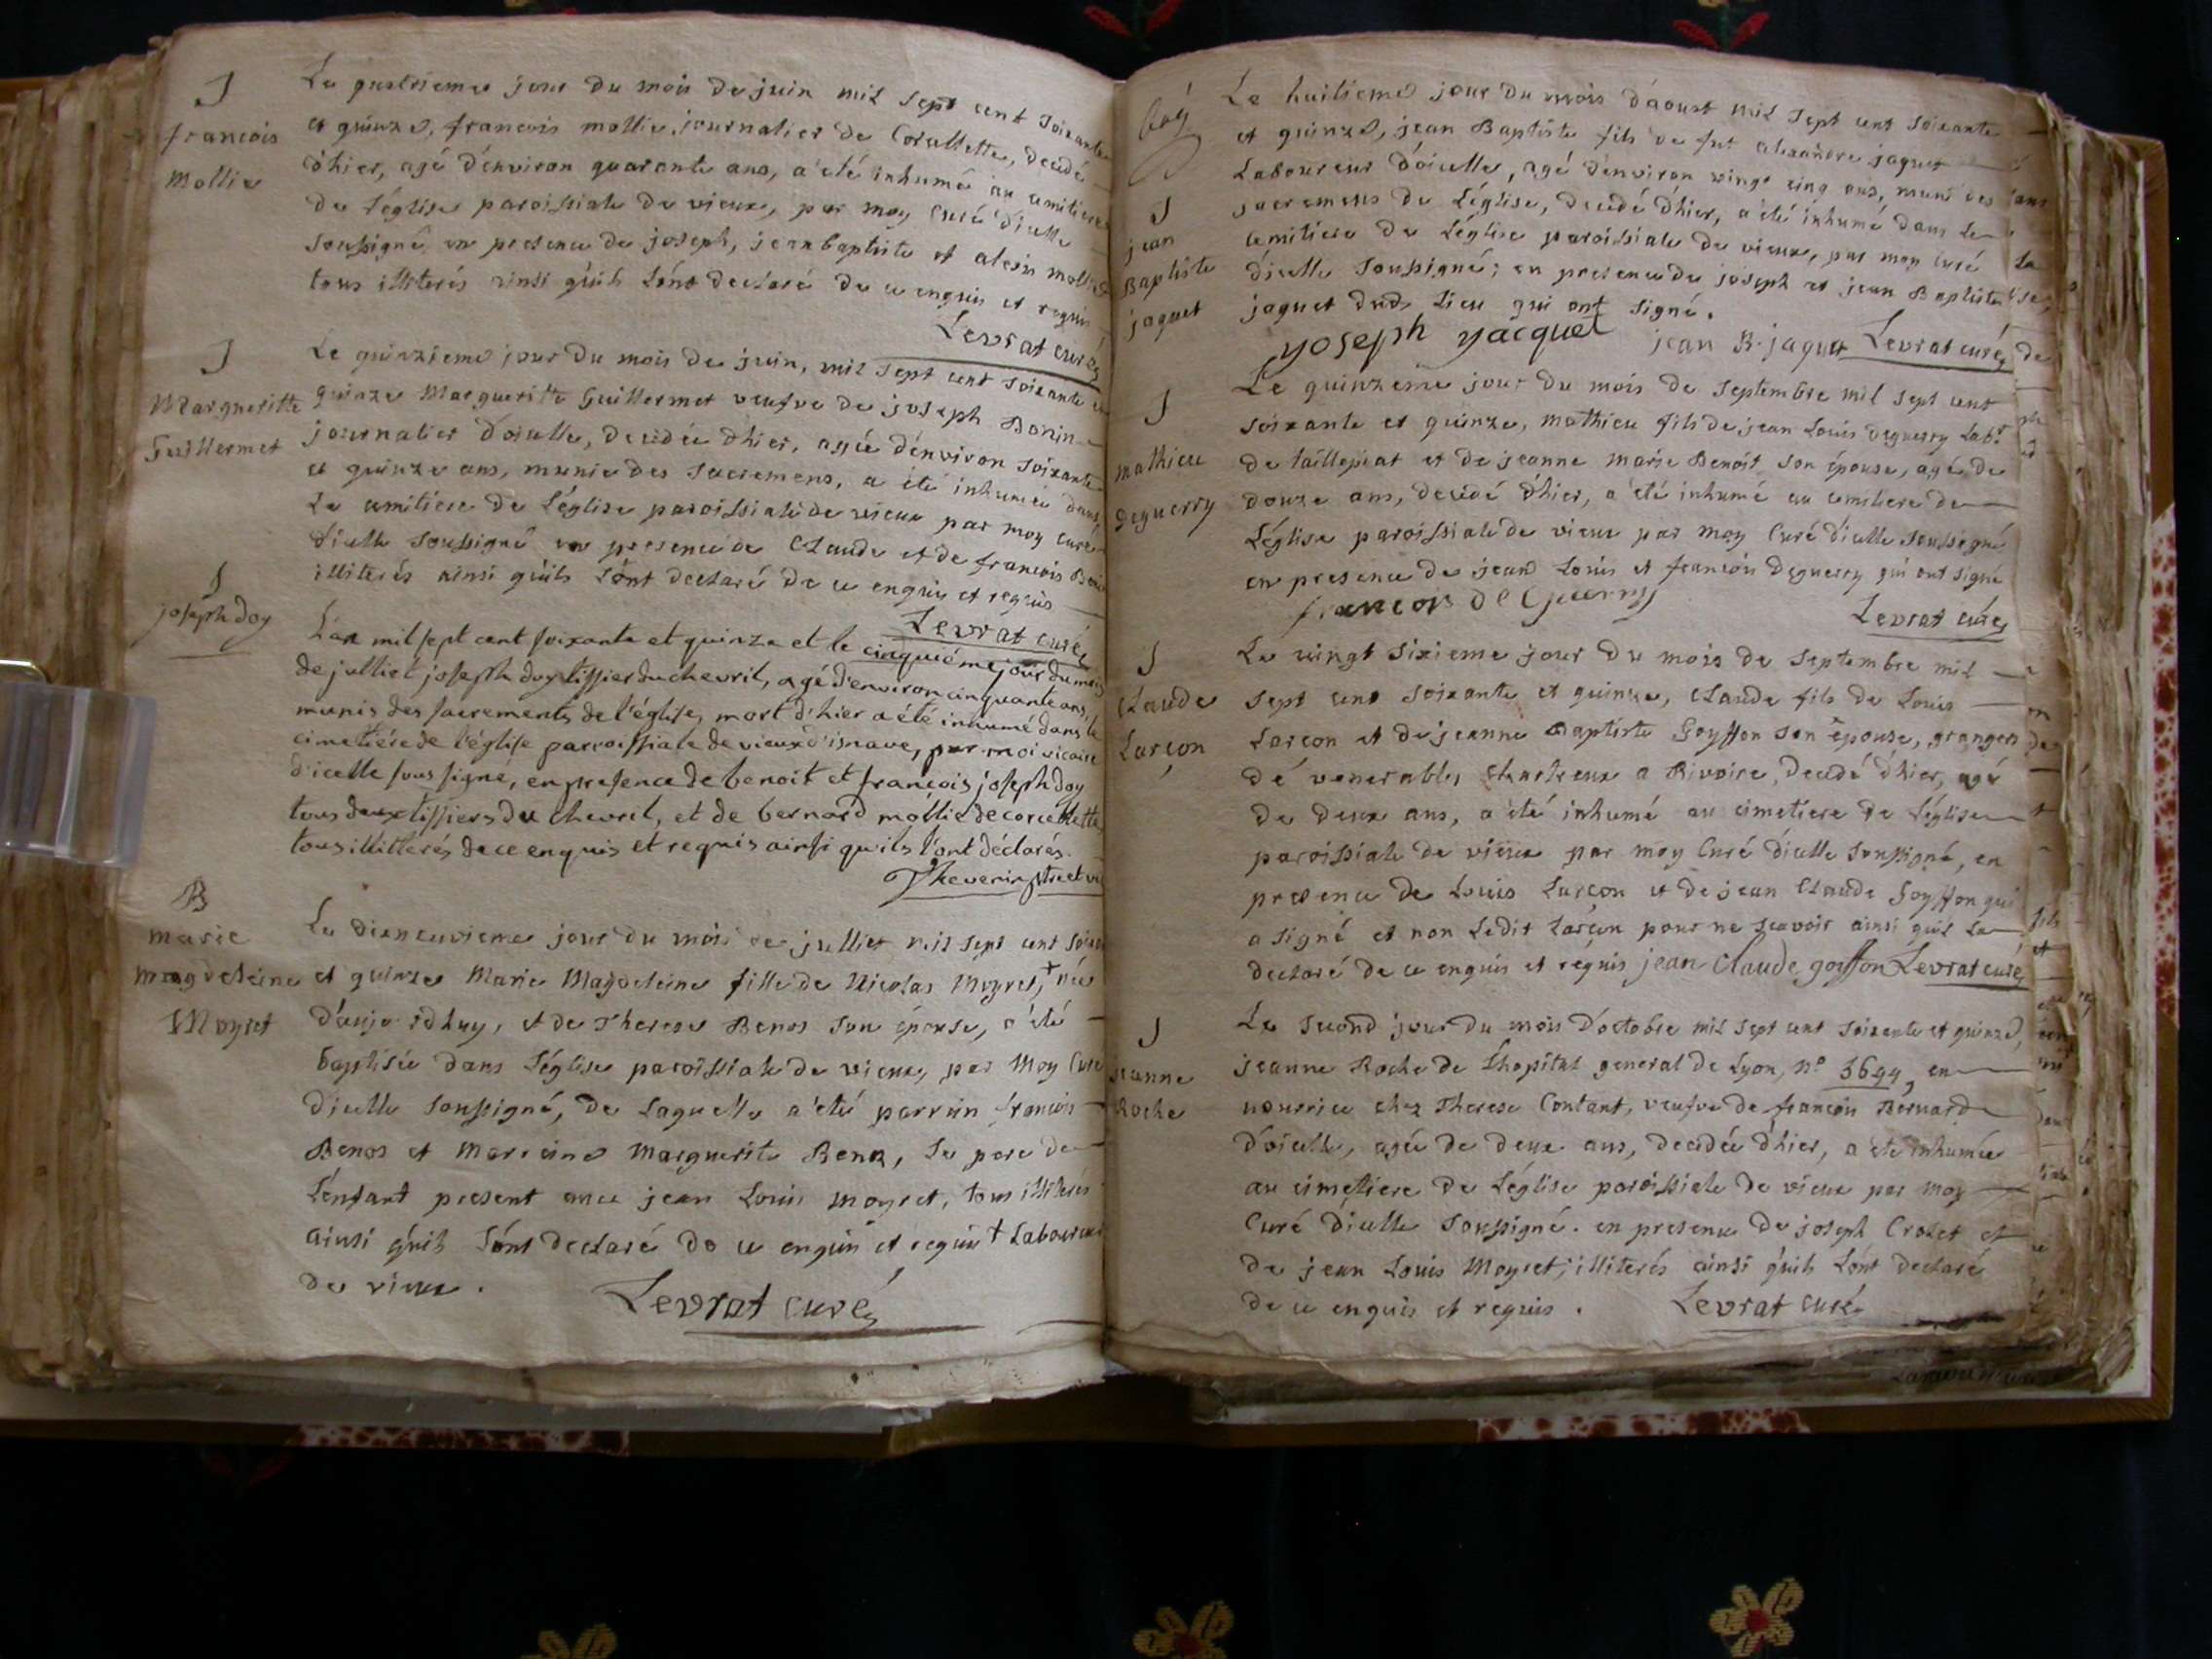 J
francois
Mollie
Le quatrieme jour du mois de juin mil sept cent soixante
et quinze, francois mollie, journalier de Corcellette, decedé
d'hier, agé d'environ quarante ans, a été inhumé au cemitiere
de l'église paroissiale de vieux, par moy Curé d'icelle
soussigné en presence de joseph, jean baptiste et alexis mollie
tous illiterés ainsi qu'ils l'ont declaré de ce enquis et requis
Levrat curé
J
Margueritte
Guillermet
Le quinzieme jour du mois de juin, mil sept cent soixante et
quinze Margueritte Guillermet veufve de joseph Bonin
journalier d'oisselle, decedée d'hier, agée d'environ soixante
et quinze ans, munie des sacremens, a été inhumée dans
Le cemitiere de l'église paroissiale de vieux par moy curé
d'icelle soussigné en presence de Claude et de francois
illiterés ainsi qu'ils l'ont declaré de ce enquis et requis
Levrat curé
J
joseph doy
L'an mil sept cent soixante et quinze et le cinquiéme jour du mois
de julliet joseph doy tissier du chevril, agé d'environ cinquante ans,
munis des sacrements de l'église, mort d'hier a été inhumé dans le
cimetiére de l'église parroissiale de vieux d'isnave, par moi vicaire
d'icelle sous signé, en presence de benoit et françois joseph doy
tous deux tissiers du chevril, et de bernard mollie de corcellette
tous illitterés de ce enquis et requis ainsi qu'ils l'ont déclarés.
Thevenin ptre et vic
B
marie
magdeleine
Moyret
Le dixneuvieme jour du mois de julliet mil sept cent soixan
et quinze Marie Magdeleine fille de Nicolas Moyret,+ née
d'aujourdhuy, et de Therese Benos son épouse, a été
baptisée dans l'église paroissiale de vieux, par Moy Curé
d'icelle soussigné, de laquelle a été parrain francois
Benos et marraine Marguerite Benos, Le pere de
L'enfant present avec jean Louis moyret, tous illiterés
ainsi qu'ils l'ont declaré de ce enquis et requis + Laboureur
de vieux.
Levrat curé
J
jean
Baptiste
jaquet
Le huitieme jour du mois d'aoust mil sept cent soixante
et quinze, jean Baptiste fils de fut alexandre jaquet
Laboureur d'oisselle, agé d'environ vingt cinq ans, muni des
sacremens de L'église, decedé d'hier, a été inhumé dans Le
cemitiere de L'église paroissiale de vieux, par moy curé
d'icelle soussigné; en presence de joseph et jean Baptiste
jaquet dudt Lieu qui ont signé.
yoseph yacquet jean B. jaquet Levrat curé
J
mathieu
deguerry
Le quinzeime jour du mois de septembre mil sept cent
soixante et quinze, mathieu fils de jean Louis deguerry Labr
de taillepiat et de jeanne marie Benoit son épouse, agé de
douze ans, decedé d'hier, a été inhumé au cemitiere de
L'église paroissiale de vieux par moy Curé d'icelle soussigné
en presence de jean Louis et francois deguerry qui ont signé
francois de Guerry
Levrat curé
J
Claude
Larçon
Le vingt sixieme jour du mois de septembre mil
sept cent soixante et quinze, Claude fils de Louis
Larçon et de jeanne Baptiste Goyffon son épouse, grangers
dé venerables Chartreux a Rivoire, decedé d'hier, agé
de deux ans, a été inhumé au cimetiere de L'église
paroissiale de vieux par moy Curé d'icelle soussigné, en
presence de Louis Larçon et de jean Claude Goyffon qui
a signé et non Ledit Larçon pour ne scavoir ainsi qu'il La
declaré de ce enquis et requis jean Claude goiffon Levrat curé
J
jeanne
Roche
Le second jour du mois d'octobre mil sept cent soixante et quinze,
jeanne Roche de L'hopital general de Lyon, no 3644, en
nourrice chez Therese Contant, veufve de francois Bernard
d'oisselle, agée de deux ans, decedée d'hier, a été inhumée
au cimetiere de L'église paroissiale de vieux par moy
Curé d'icelle soussigné. en presence de joseph Crozet et
de jean Louis Moyret, illiterés ainsi qu'ils L'ont declaré
de ce enquis et requis. Levrat curé